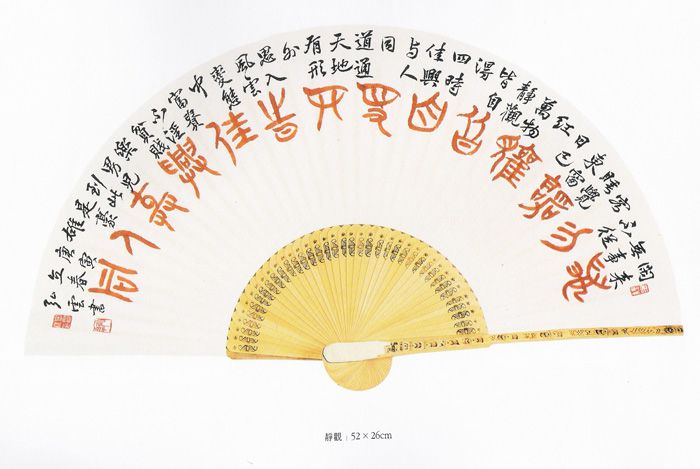 閒來
無事
不從
容
睡覺
東窗
日已
紅
萬物
靜觀
皆自
得
四時
佳興
與人
同
道通
天地
有形
外
思入
風雲
變態
中
富貴
不淫
貧賤
樂
男兒
到此
是豪
雄
庚寅
立春
弘雲書
萬物靜觀皆自得四時佳興與人同
靜觀：52×26cm